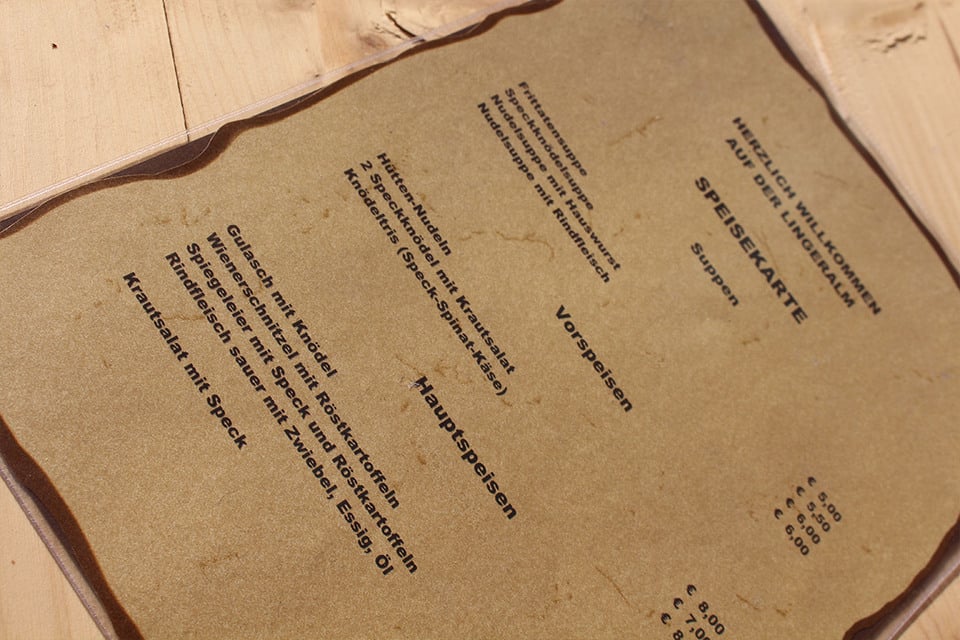 HERZLICH WILLKOMMEN
AUF DER LINGERALM
SPEISEKARTE
Suppen
Frittatensuppe € 5,00
Speckknödelsuppe € 5,50
Nudelsuppe mit Hauswurst € 6,00
Nudelsuppe mit Rindfleisch € 6,00
Vorspeisen
Hütten-Nudeln € 8,00
2 Speckknödel mit Krautsalat € 7,0
Knödeltris (Speck-Spinat-Käse) € 8
Hauptspeisen
Gulasch mit Knödel
Wienerschnitzel mit Röstkartoffeln
Spiegeleier mit Speck und Röstkartoffeln
Rindfleisch sauer mit Zwiebel, Essig, Öl
Krautsalat mit Speck